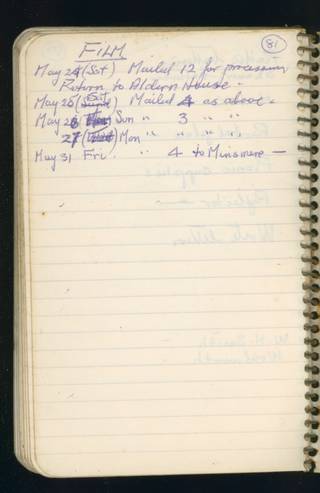 81
FILM
May 24 (Sat) Mailed 12 for processing
Return to Aldern House.
May 25 Sat Mailed 4 as above.
May 26 Sun " 3 " "
27 Mon " " " "
May 31 Fri. " 4 to Minsmere —